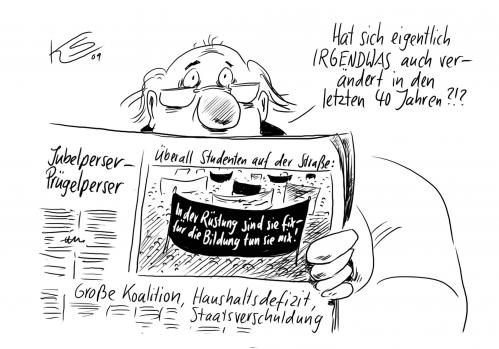 KS
09
Hat sich eigentlich
IRGENDWAS auch ver-
ändert in den
letzten 40 Jahren?!?
Jubelperser-
Prügelperser
Überall Studenten auf der Straße:
In der Rüstung sind sie fix-
für die Bildung tun sie nix!
Große Koalition, Haushaltsdefizit,
Staatsverschuldung